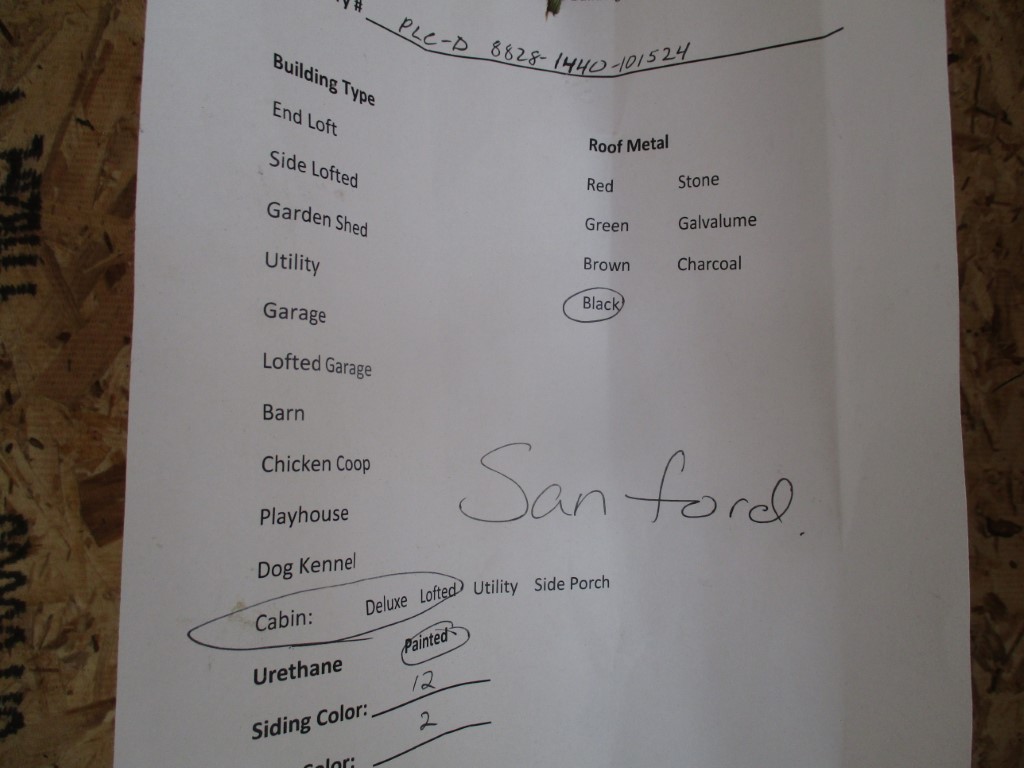 y# PLC-D 8828-1440-101524
Building Type
End Loft
Side Lofted
Garden Shed
Utility
Garage
Lofted Garage
Barn
Chicken Coop
Playhouse
Dog Kennel
Cabin: Deluxe Lofted Utility Side Porch
Urethane Painted
Siding Color: 12
Color: 2
Roof Metal
Red Stone
Green Galvalume
Brown Charcoal
Black
Sanford.